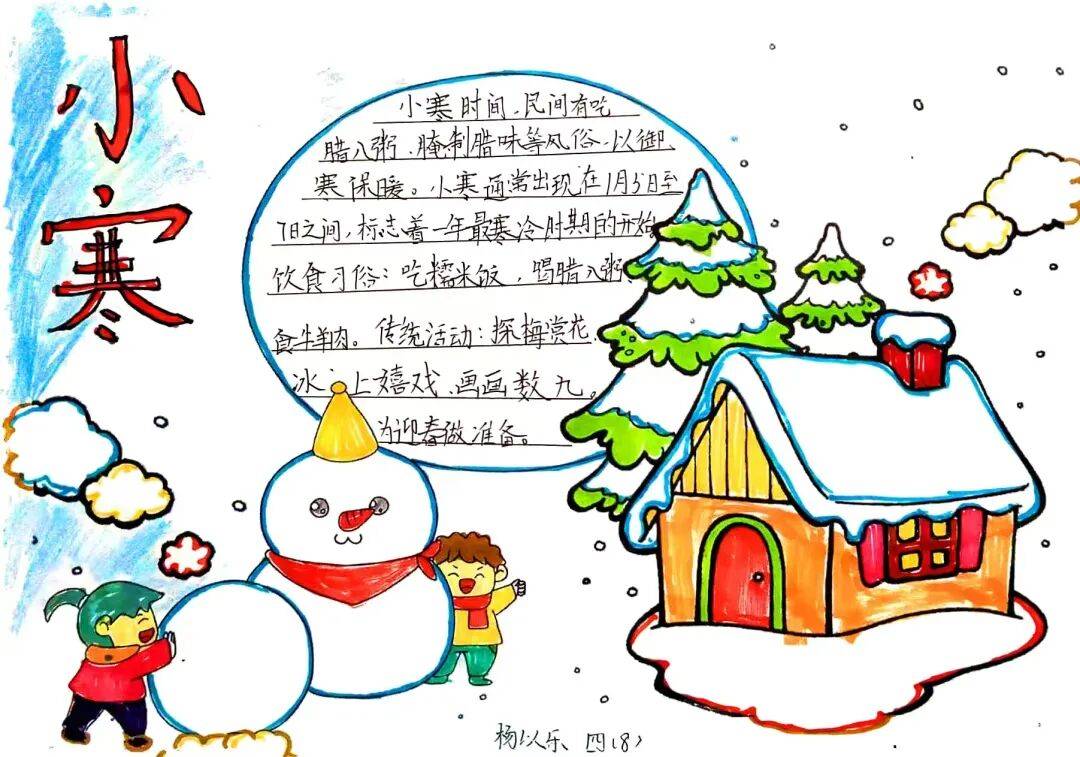 小寒
小寒时间，民间有吃
腊八粥、腌制腊味等风俗，以御
寒保暖。小寒通常出现在1月5日至
7日之间，标志着一年最寒冷时期的开始
饮食习俗：吃糯米饭，喝腊八粥、
食牛羊肉。传统活动：探梅赏花、
冰上嬉戏、画画数九。
为迎春做准备。
杨以乐 四(8)